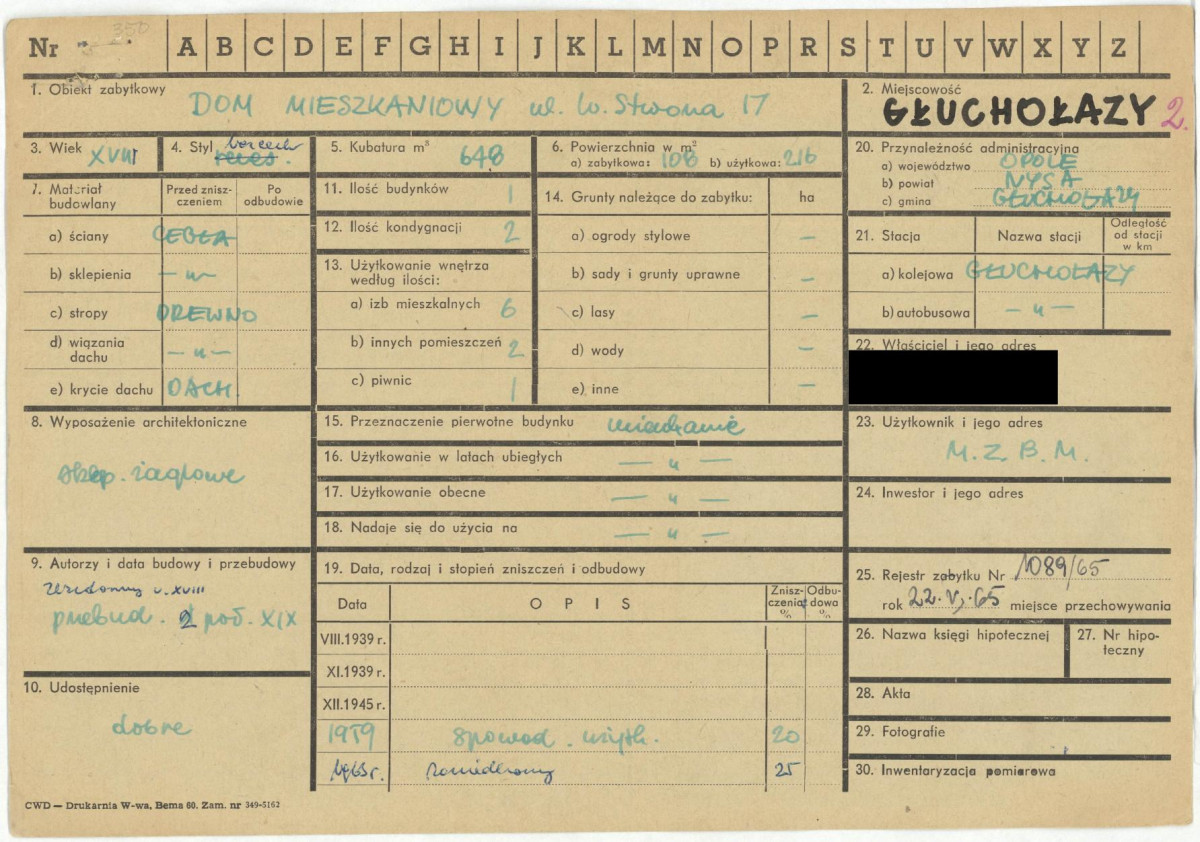 Nr 350 A B C D E F G H I J K L M N O P R S T U V W X Y Z
1. Obiekt zabytkowy
DOM MIESZKANIOWY ul. W. Stwosza 17
2. Miejscowość
GŁUCHOŁAZY 2.
3. Wiek XVIII
4. Styl
5. Kubatura m³ 648
6. Powierzchnia w m²
a) zabytkowa: 108 b) użytkowa: 216
20. Przynależność administracyjna
a) województwo OPOLE
b) powiat NYSA
c) gmina GŁUCHOŁAZY
7. Materiał budowlany
Przed zniszczeniem
Po odbudowie
a) ściany CEGŁA
b) sklepienia — „ —
c) stropy DREWNO
d) wiązania dachu — „ —
e) krycie dachu DACH.
11. Ilość budynków 1
12. Ilość kondygnacji 2
13. Użytkowanie wnętrza
według ilości:
a) izb mieszkalnych 6
b) innych pomieszczeń 2
c) piwnic 1
14. Grunty należące do zabytku: ha
a) ogrody stylowe —
b) sady i grunty uprawne —
c) lasy —
d) wody —
e) inne —
21. Stacja
Nazwa stacji
Odległość od stacji w km
a) kolejowa GŁUCHOŁAZY
b) autobusowa — „ —
22. Właściciel i jego adres
8. Wyposażenie architektoniczne
sklep. żaglowe
15. Przeznaczenie pierwotne budynku mieszkanie
16. Użytkowanie w latach ubiegłych — „ —
17. Użytkowanie obecne — „ —
18. Nadaje się do użycia na — „ —
23. Użytkownik i jego adres
M. Z. B. M.
24. Inwestor i jego adres
9. Autorzy i data budowy i przebudowy
w. XVIII
przebud. 2 poł. XIX
19. Data, rodzaj i stopień zniszczeń i odbudowy
Data
OPIS
Zniszczenia %
Odbudowa %
VIII.1939 r.
XI.1939 r.
XII.1945 r.
1959 spowod. użytk. 20
1963 r. 25
10. Udostępnienie
dobre
25. Rejestr zabytku Nr 1089/65
rok 22.V.65 miejsce przechowywania
26. Nazwa księgi hipotecznej
27. Nr hipoteczny
28. Akta
29. Fotografie
30. Inwentaryzacja pomiarowa
CWD — Drukarnia W-wa, Bema 60. Zam. nr 349-5162